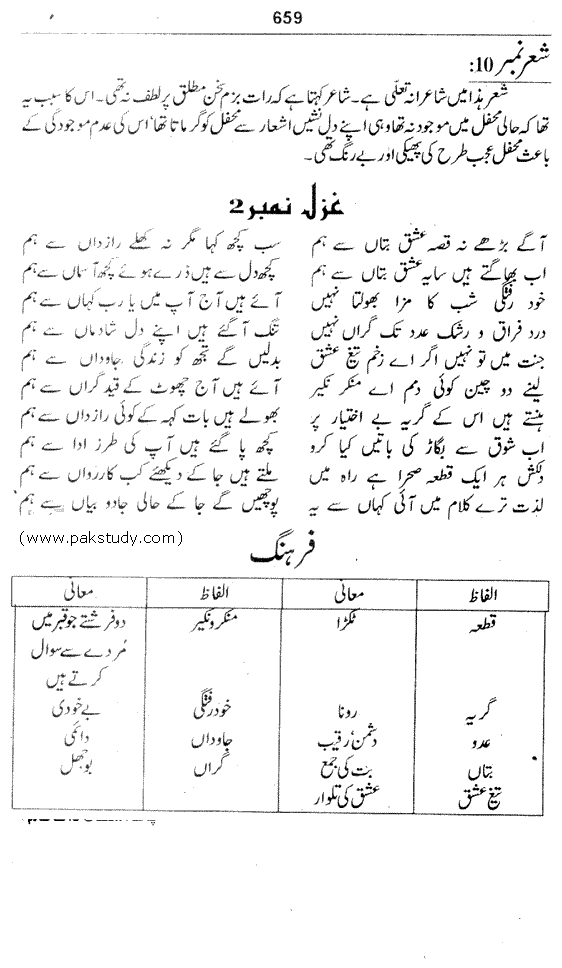 659
شعر نمبر 10:
شعر ہذا میں شاعرانہ تعلّی ہے۔ شاعر کہتا ہے کہ رات بزم سخن مطلق پر لطف نہ تھی۔ اس کا سبب یہ
تھا کہ حالی محفل میں موجود نہ تھا وہی اپنے دل نشیں اشعار سے محفل کو گرماتا تھا' اس کی عدم موجودگی کے
باعث محفل عجب طرح کی پھیکی اور بے رنگ تھی۔
غزل نمبر 2
آگے بڑھے نہ قصہ عشق بتاں سے ہم سب کچھ کہا مگر نہ کھلے رازداں سے ہم
اب بھاگتے ہیں سایہ عشق بتاں سے ہم کچھ دل سے ہیں ڈرے ہوئے کچھ آسماں سے ہم
خود رفتگی شب کا مزا بھولتا نہیں آئے ہیں آج آپ میں یا رب کہاں سے ہم
درد فراق و رشک عدد تک گراں نہیں تنگ آ گئے ہیں اپنے دل شادماں سے ہم
جنت میں تو نہیں اگر اے زخم تیغ عشق بدلیں گے تجھ کو زندگی جاوداں سے ہم
لینے دو چین کوئی دم اے منکر نکیر آئے ہیں آج چھوٹ کے قید گراں سے ہم
ہنستے ہیں اس کے گریہ بے اختیار پر بھولے ہیں بات کہہ کے کوئی رازداں سے ہم
اب شوق سے بگاڑ کی باتیں کیا کرو کچھ پا گئے ہیں آپ کی طرز ادا سے ہم
دلکش ہر ایک قطعہ صحرا ہے راہ میں ملتے ہیں جا کے دیکھئے کب کارواں سے ہم
لذت ترے کلام میں آئی کہاں سے یہ پوچھیں گے جا کے حالی جادو بیاں سے ہم
(www.pakstudy.com)
فرہنگ
الفاظ معانی الفاظ معانی
قطعہ ٹکڑا منکر و نکیر دو فرشتے جو قبر میں
مُردے سے سوال
کرتے ہیں
گریہ رونا خود رفتگی بے خودی
عدو دشمن' رقیب جاوداں دائمی
بتاں بت کی جمع گراں بوجھل
تیغ عشق عشق کی تلوار